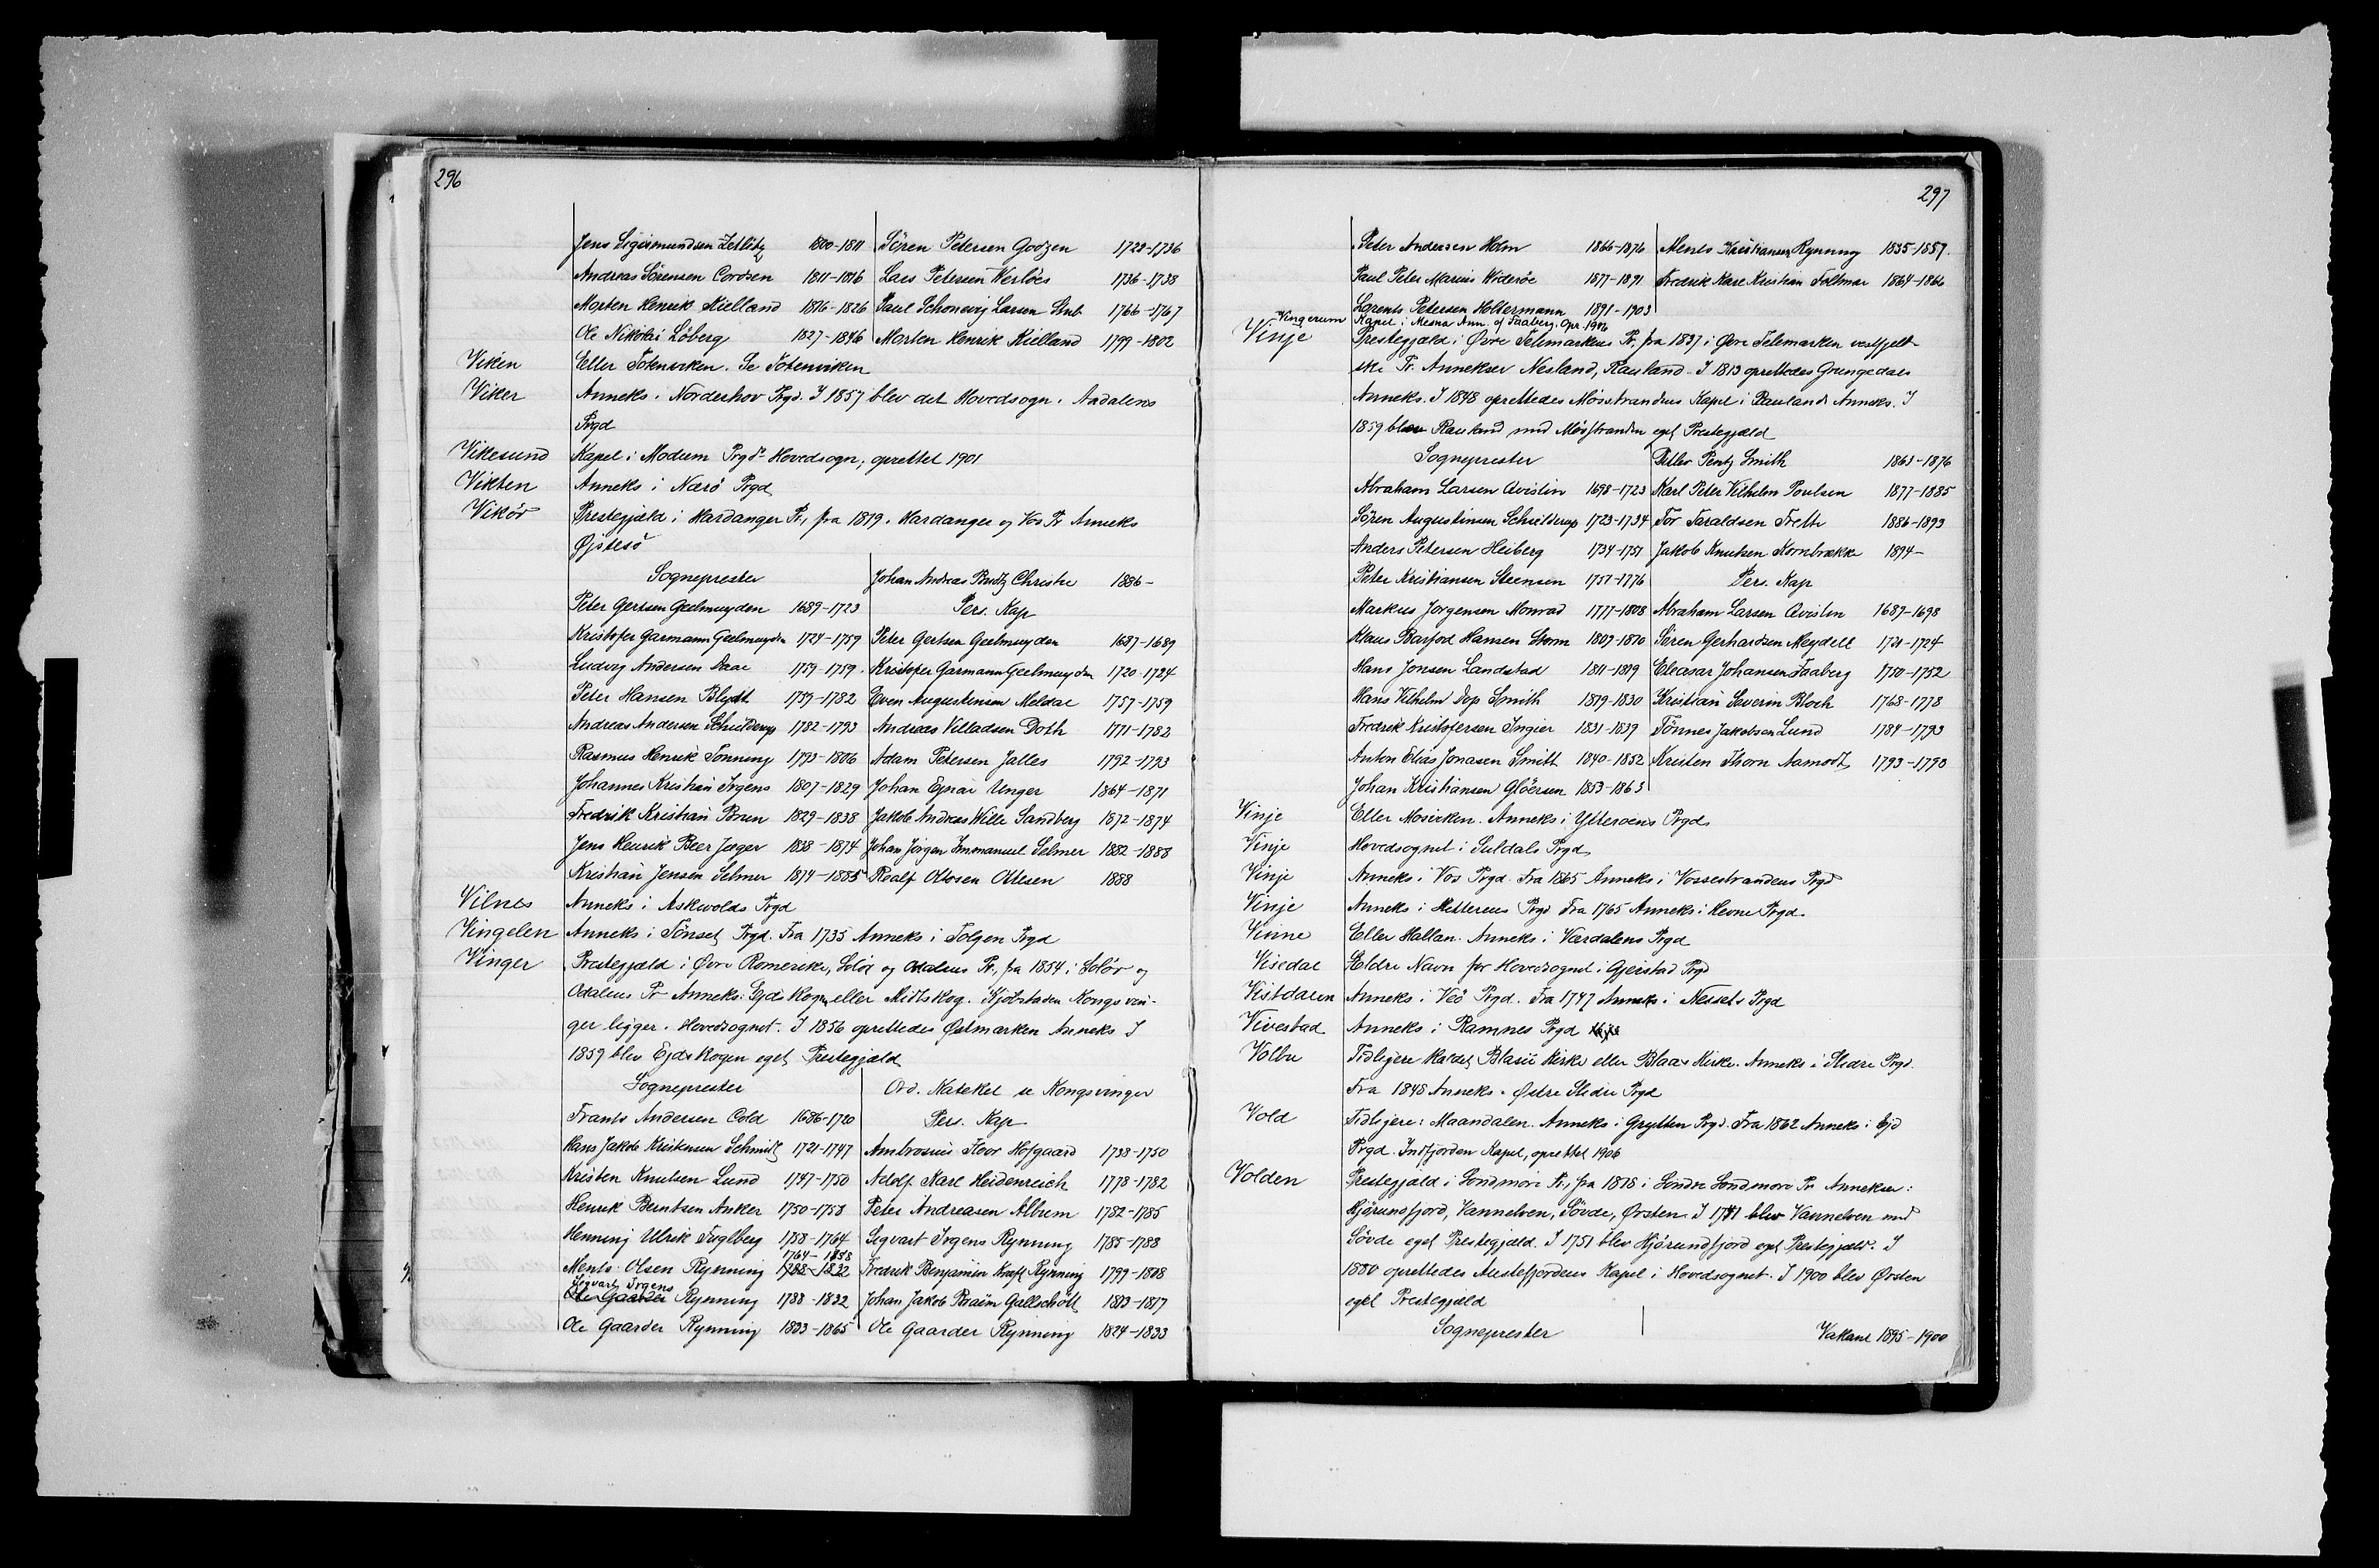 296
Jens Sigismundsen Zetlitz 1800-1811 Sören Petersen Godzen 1728-1736
Andreas Sörensen Cordsen 1811-1816 Lars Petersen Weslöes 1736-1738
Morten Henrik Kielland 1816-1826 Paul Schonevig Larsen Stub 1766-1767
Ole Nikolai Löberg 1827-1846 Morten Henrik Kielland 1799-1802
Viken Eller Totenviken. Se Totenviken
Viker Anneks i Norderhov Prgd. I 1857 blev det Hovedsogn i Aadalens
Prgd
Vikesund Kapel i Modum Prgds Hovedsogn, oprettet 1901
Vikten Anneks i Nærö Prgd
Vikör Prestegjæld i Hardanger Pr., fra 1819 i Hardanger og Vos Pr Anneks
Øjstesö
Sogneprester Johan Andreas Budtz Christie 1886-
Peter Gertsen Geelmuyden 1689-1723 Pers. Kap
Kristofer Garmann Geelmuyden 1724-1759 Peter Gertsen Geelmuyden 1687-1689
Ludvig Andersen Daae 1759-1759 Kristofer Garmann Geelmuyden 1720-1724
Peter Hansen Blydt 1759-1782 Even Augustinsen Meldal 1757-1759
Andreas Andersen Schielderup 1782-1793 Andreas Villadsen Doth 1771-1782
Rasmus Henrik Tonning 1793-1806 Adam Petersen Jalles 1792-1793
Johannes Kristian Irgens 1807-1829 Johan Ejnar Unger 1864-1871
Fredrik Kristian Brun 1829-1838 Jakob Andreas Wille Sandberg 1872-1874
Jens Henrik Beer Jæger 1838-1874 Johan Jörgen Immanuel Selmer 1882-1888
Kristian Jensen Selmer 1874-1885 Realf Ottosen Ottesen 1888
Vilnes Anneks i Askvolds Prgd
Vingelen Anneks i Tönset Prgd. Fra 1735 Anneks i Tolgen Prgd
Vinger Prestegjæld i Øvre Romerike, Solör og Odalens Pr., fra 1854 i Solör og
Odalens Pr Anneks: Ejdskogen eller Midtskog. Kjöbstaden Kongsvin-
ger ligger i Hovedsognet. I 1856 oprettedes Østmarken Anneks I
1859 blev Ejdskogen eget Prestegjæld
Sogneprester Ord. Kateket se Kongsvinger
Frants Andersen Cold 1686-1720 Pers. Kap
Hans Jakob Kristensen Schmidt 1721-1747 Ambrosius Floor Hofgaard 1738-1750
Kristen Knutsen Lund 1747-1750 Adolf Karl Heidenreich 1778-1782
Henrik Berntsen Anker 1750-1758 Peter Andreasen Album 1782-1785
Henning Ulrik Fuglberg 1758-1764 Segvart Irgens Rynning 1785-1788
1764-1858
Ments Olsen Rynning 1788-1832 Fredrik Benjamin Kraft Rynning 1799-1808
Segvart Irgens
Ole Gaarder Rynning 1788-1832 Johan Jakob Rosiin Gallschött 1813-1817
Ole Gaarder Rynning 1833-1865 Ole Gaarder Rynning 1824-1833
297
Peter Andersen Holm 1866-1876 Ments Kristiansen Rynning 1835-1857
Paul Peter Marius Wideröe 1877-1891 Fredrik Karl Kristian Foltmar 1864-1866
Lorents Petersen Holtermann 1891-1903
Vingerum Kapel i Mesna Ann. af Faaberg. Opr. 1906
Vinje Prestegjæld i Øvre Telemarkens Pr, fra 1837 i Øvre Telemarken vestfjelt-
ske Pr. Annekser Nesland, Rauland. I 1813 oprettedes Grungedals
Anneks. I 1848 oprettedes Mösstrandens Kapel i Raulands Anneks. I
1859 blev Rauland med Mösstranden eget Prestegjæld
Sogneprester Ditlev Pentz Smith 1863-1876
Abraham Larsen Qvislin 1698-1723 Karl Peter Vilhelm Poulsen 1877-1885
Sören Augustinsen Schielderup 1723-1734 Tor Taraldsen Treth 1886-1893
Anders Petersen Heiberg 1734-1751 Jakob Knutsen Kornbrække 1894-
Peter Kristiansen Steensen 1751-1776 Pers. Kap
Markus Jörgensen Monrad 1777-1808 Abraham Larsen Qvislin 1687-1698
Klaus Barfod Hansen Storm 1807-1810 Sören Gerhardsen Meydell 1721-1724
Hans Jonsen Landstad 1811-1819 Eleasar Johansen Faaberg 1750-1752
Hans Vilhelm Dop Smith 1819-1830 Kristian Severin Bloch 1768-1778
Fredrik Kristofersen Ingier 1831-1839 Tönnes Jakobsen Lund 1784-1793
Anton Elias Jonasen Smitt 1840-1852 Kristen Thorn Aamodt 1793-1798
Johan Kristiansen Glöersen 1853-1863
Vinje Eller Mosviken. Anneks i Ytteröens Prgd
Vinje Hovedsognet i Suldals Prgd
Vinje Anneks i Vos Prgd. Fra 1865 Anneks i Vossestrandens Prgd
Vinje Anneks i Hitterens Prgd Fra 1765 Anneks i Hevne Prgd
Vinne Eller Hallan. Anneks i Værdalens Prgd
Visedal Ældre Navn for Hovedsognet i Gjerstad Prgd
Vistdalen Anneks i Veö Prgd. Fra 1747 Anneks i Nessets Prgd
Vivestad Anneks i Ramnes Prgd
Volbu Tidligere kaldet Blasii Kirke eller Blaas Kirke. Anneks i Slidre Prgd.
Fra 1848 Anneks i Østre Slidre Prgd
Vold Tidligere: Maandalen. Anneks i Grytten Prgd. Fra 1862 Anneks i Ejd
Prgd. Indfjorden Kapel, oprettet 1906
Volden Prestegjæld i Söndmöre Pr., fra 1878 i Söndre Söndmöre Pr Annekser:
Hjörundfjord, Vannelven, Sövde, Ørsten. I 1741 blev Vannelven med
Sövde eget Prestegjæld. I 1751 blev Hjörundfjord eget Prestegjæld. I
1880 oprettedes Austefjordens Kapel i Hovedsognet. I 1900 blev Ørsten
eget Prestegjæld
Sogneprester Vakant 1895-1900